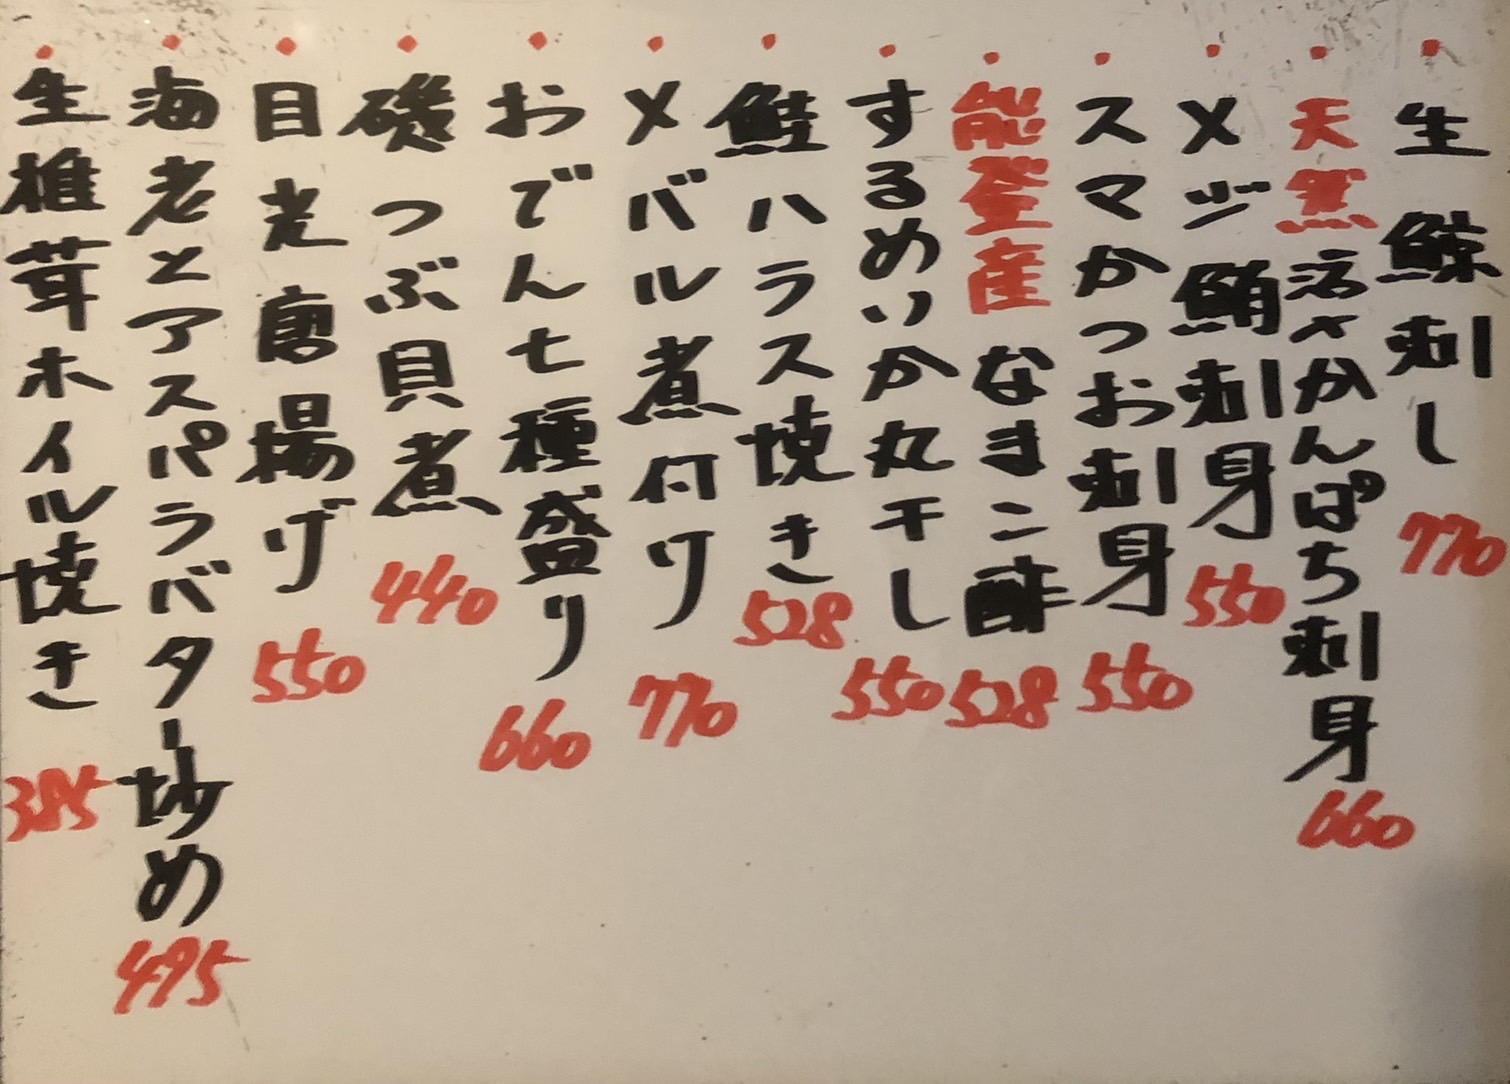 ・生鯨刺し 770
・天然活〆かんぱち刺身 660
・メヅ鮪刺身 550
・スマかつお刺身 550
・能登産なまこ酢 528
・するめいか丸干し 550
・鮭ハラス焼き 528
・メバル煮付り 770
・おでん七種盛り 660
・磯つぶ貝煮 440
・目光唐揚げ 550
・海老とアスパラバター炒め 495
・生椎茸ホイル焼き 385